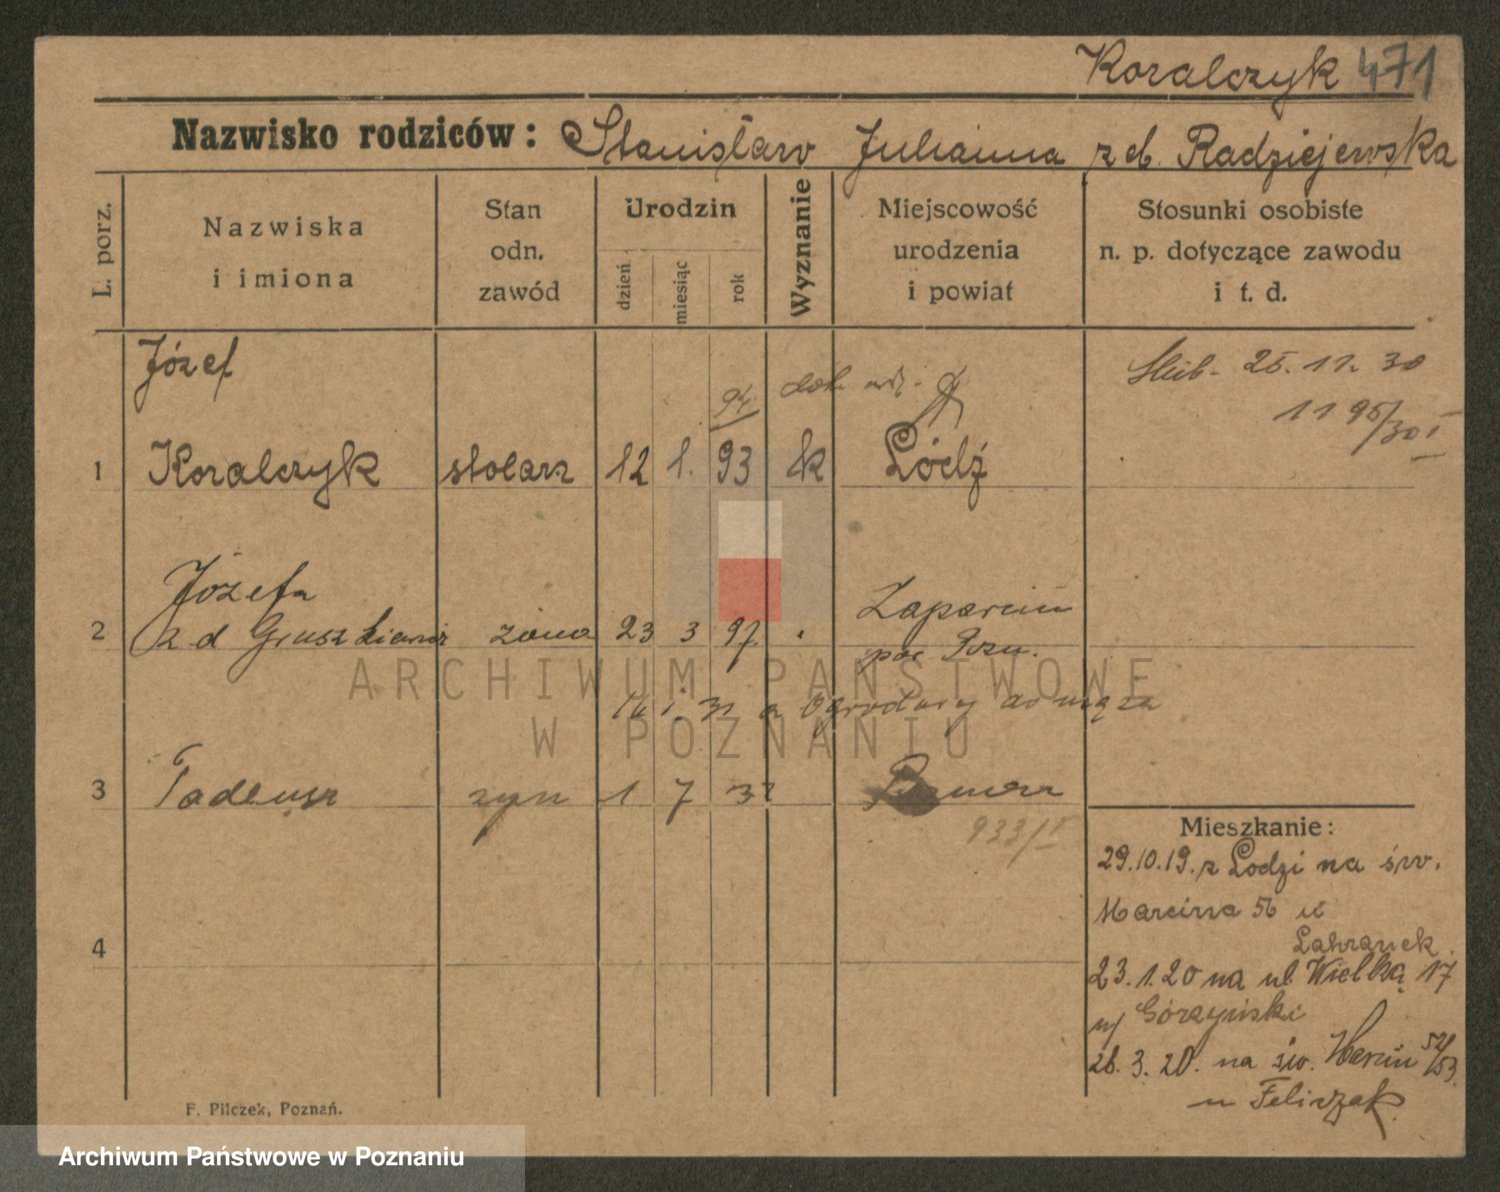 Koralczyk 471
Nazwisko rodziców: Stanisław Julianna z d. Radziejewska
L. porz.
Nazwiska
i imiona
Stan
odn.
zawód
Urodzin
dzień
miesiąc
rok
Wyznanie
Miejscowość
urodzenia
i powiat
Stosunki osobiste
n. p. dotyczące zawodu
i t. d.
Józef
94
25. 11. 30
1 Koralczyk stolarz 12 1. 93 k Łódź
Józefa
2 z d żona 23 3 97.
pow Pozn.
Ogrodowy do męża
3 Tadeusz syn 1 7 31
933/I
Mieszkanie:
29.10.19. z Łodzi na św.
Marcina 56 u
23.1.20 na ul. Wielką 17
u/ Górzyński
26. 3. 20. na św. Marcin 52/53
u Feliczak
4
F. Pilczek, Poznań.
ARCHIWUM PAŃSTWOWE
W POZNANIU
Archiwum Państwowe w Poznaniu